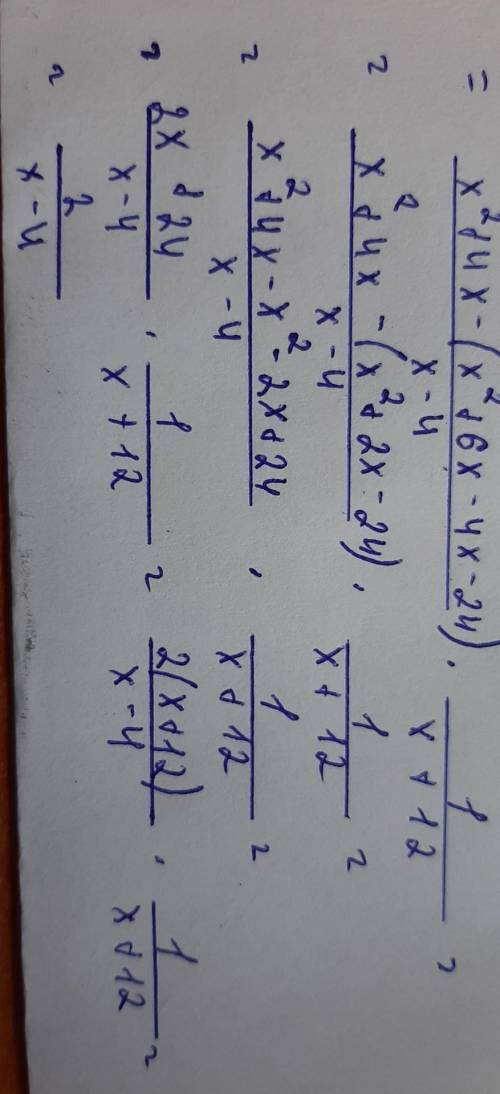 = (x² + 4x - (x² + 6x - 4x - 24))/(x - 4) · 1/(x + 12) =
= (x² + 4x - (x² + 2x - 24))/(x - 4) · 1/(x + 12) =
= (x² + 4x - x² - 2x + 24)/(x - 4) · 1/(x + 12) =
= (2x + 24)/(x - 4) · 1/(x + 12) = (2(x + 12))/(x - 4) · 1/(x + 12) =
= 2/(x - 4)